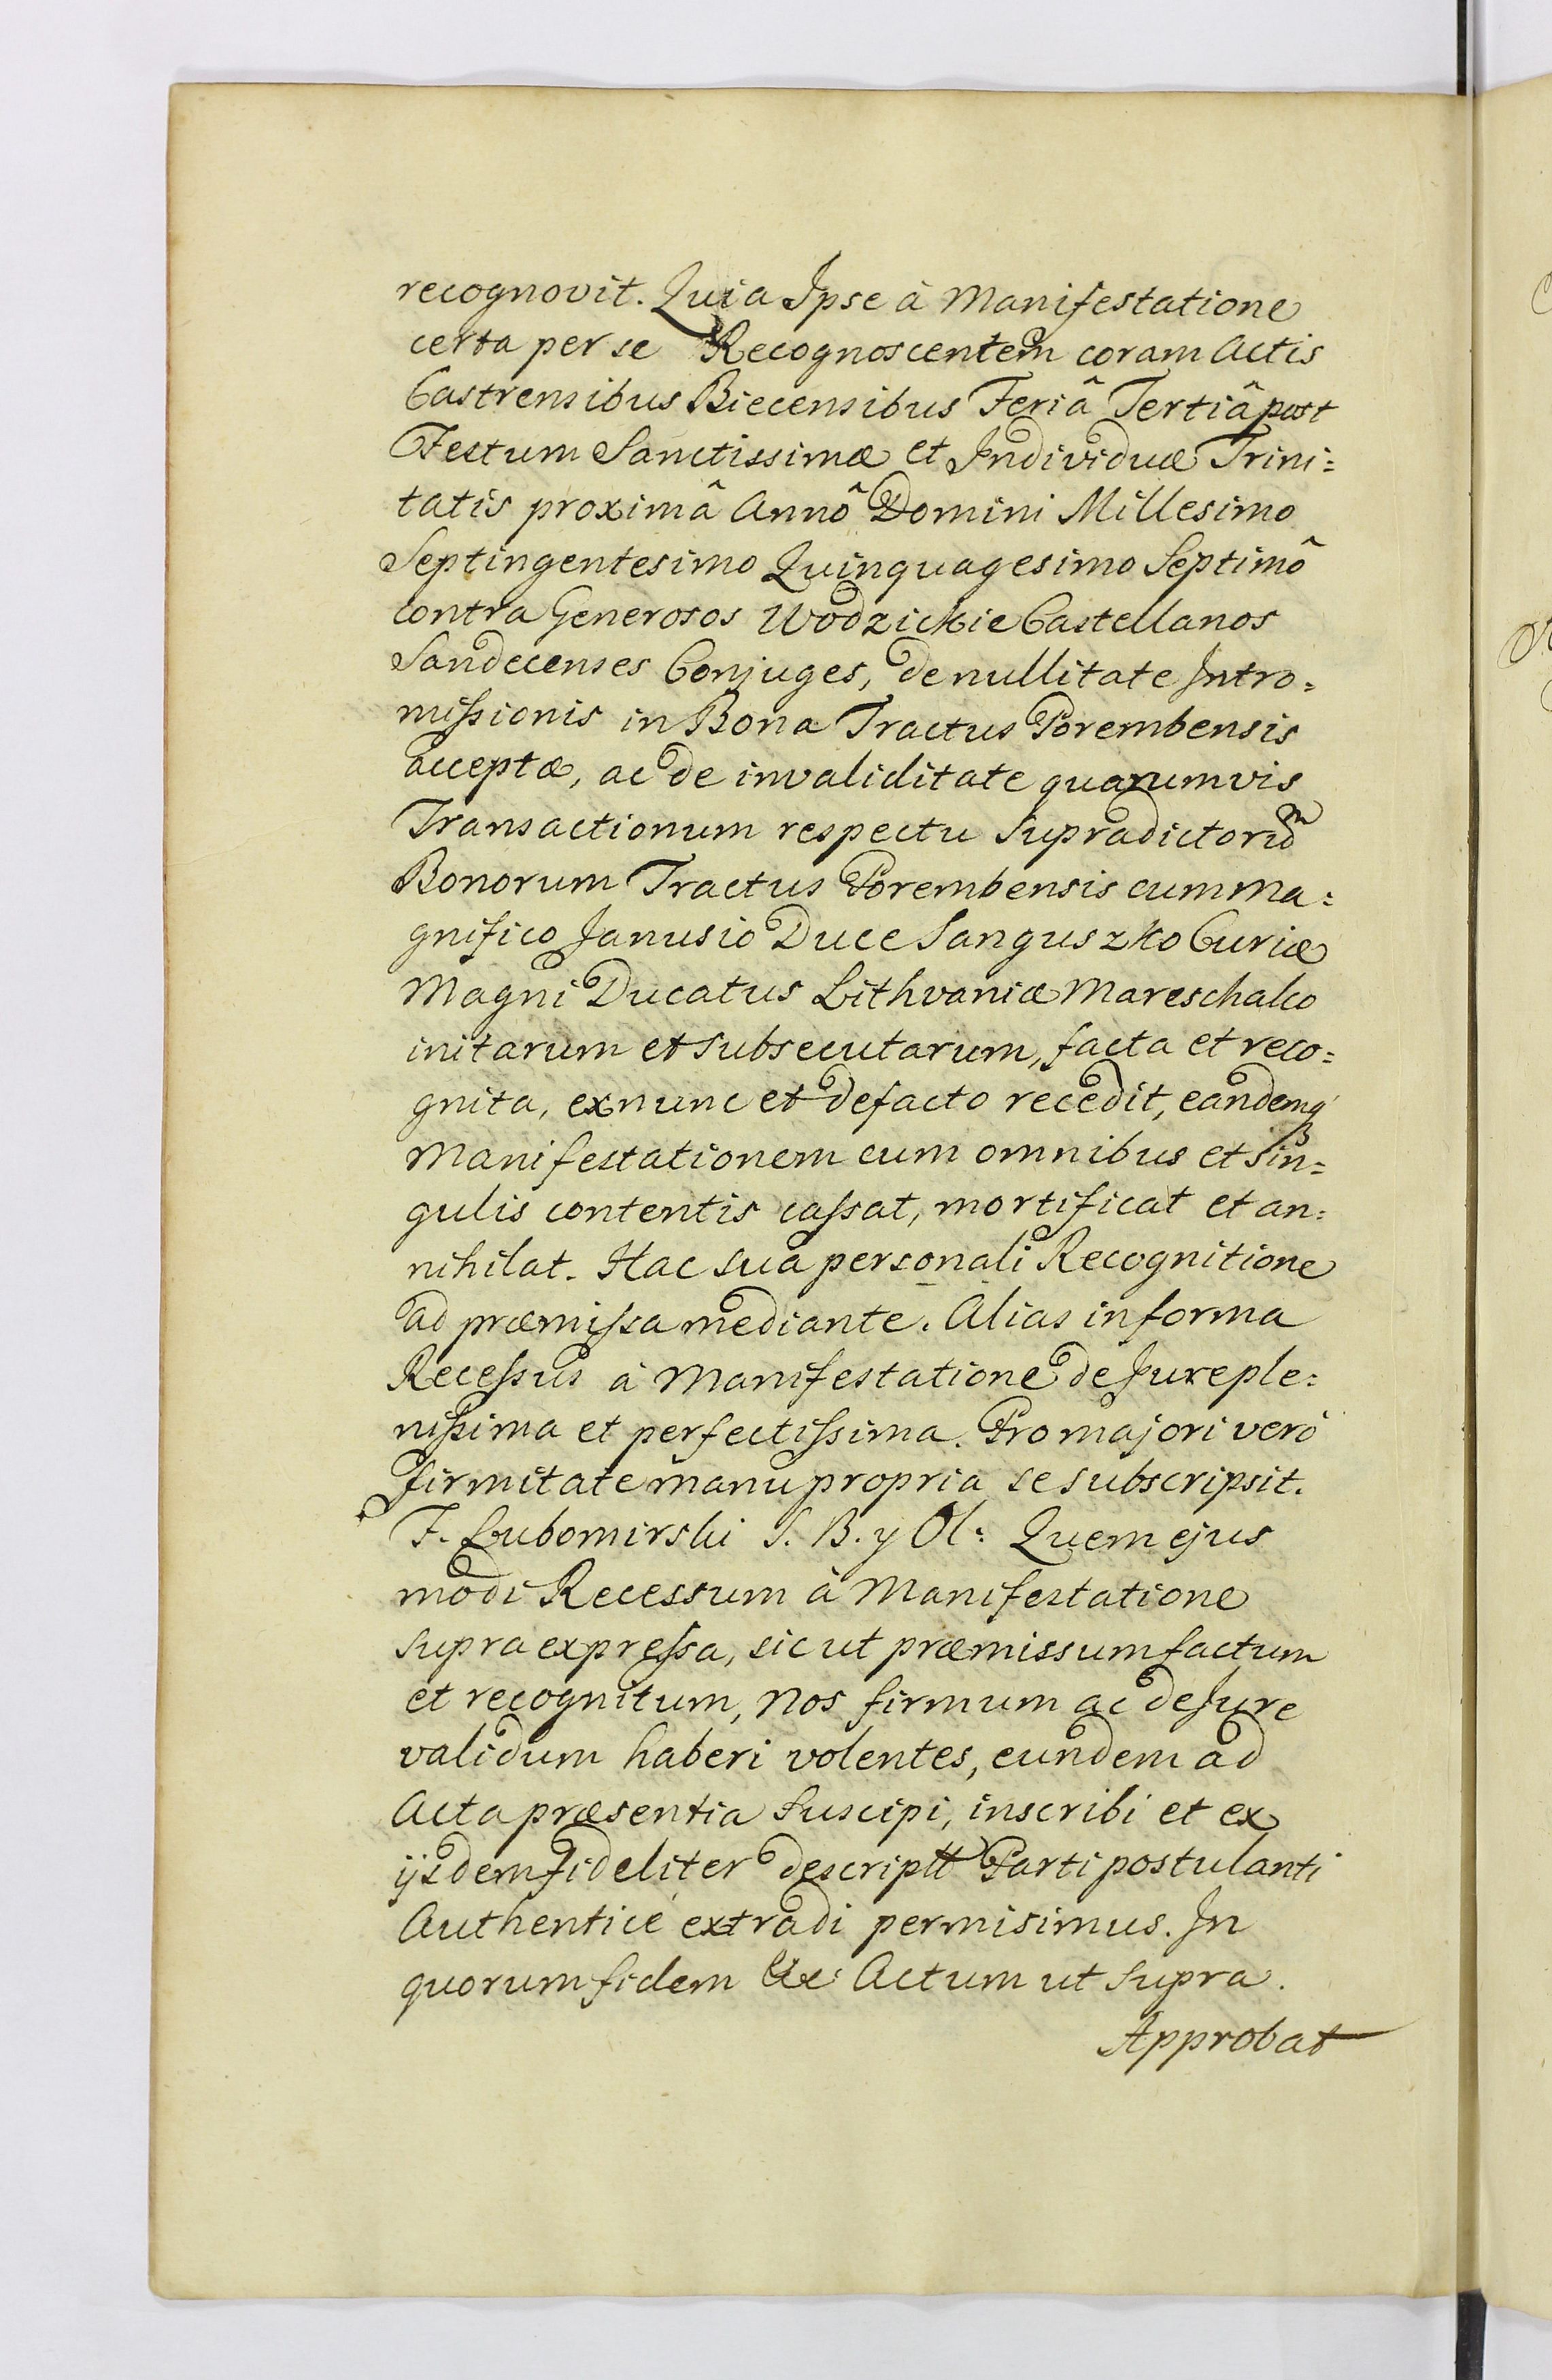 recognovit. Quia Ipse à Manifestatione
certa per se Recognoscentem coram Actis
Castrensibus Biecensibus Feriâ Tertiâ post
Festum Sanctissimæ et Individuæ Trini=
tatis proximâ Annô Domini Millesimo
Septingentesimo Quinquagesimo Septimô
contra Generosos Wodzickie Castellanos
Sandecenses Conjuges, de nullitate Intro=
missionis in Bona Tractus Porembensis
acceptæ, ac de invaliditate quarumvis
Transactionum respectu supradictorum
Bonorum Tractus Porembensis cum Ma=
gnifico Janusio Duce Sanguszko Curiæ
Magni Ducatus Lithvaniæ Mareschalco
initarum et subsecutarum, facta et reco=
gnita, ex nunc et de facto recedit, eandemq
Manifestationem cum omnibus et sin=
gulis contentis cassat, mortificat et an=
nihilat. Hac sua personali Recognitione
ad præmissa mediante. Alias in forma
Recessus à Manifestatione de Jure ple=
nissima et perfectissima. Pro majori verò
firmitate manu propria se subscripsit.
F. Lubomirski S. B. y Ol: Quem ejus
modi Recessum à Manifestatione
supra expressa, sicut præmissum factum
et recognitum, Nos firmum ac de Jure
validum haberi volentes, eundem ad
Acta præsentia suscipi, inscribi et ex
ijsdem fideliter descriptt Parti postulanti
Authenticè extradi permisimus. In
quorum fidem &c: Actum ut supra.
Approbat